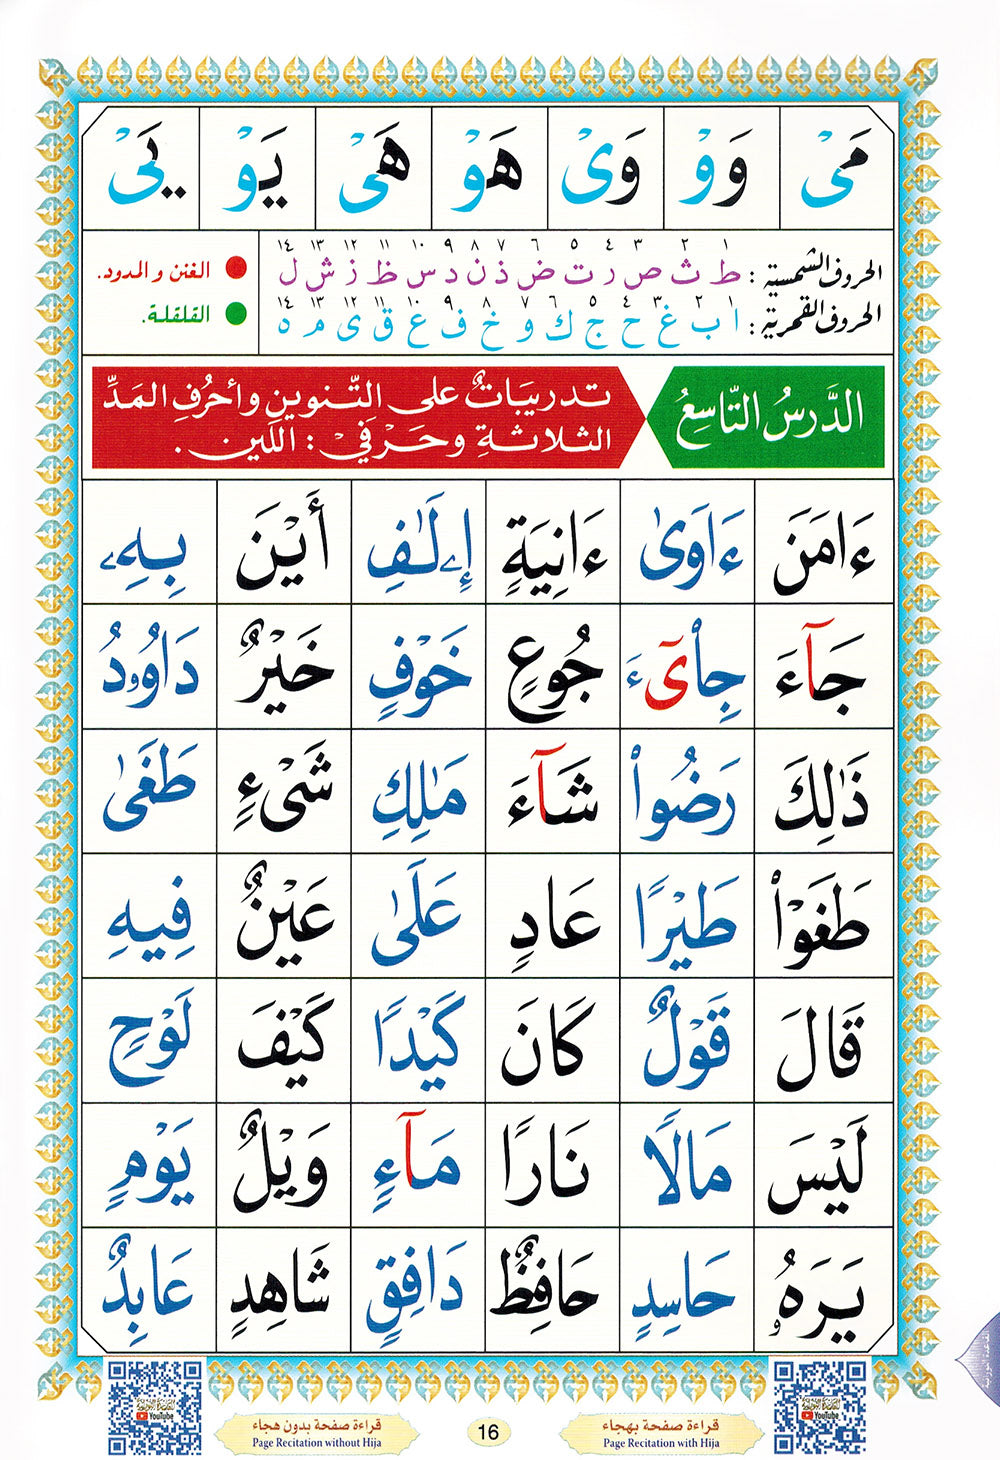 مَيْ وَوْ وَيْ هَوْ هَيْ يَوْ يَيْ
١ ٢ ٣ ٤ ٥ ٦ ٧ ٨ ٩ ١٠ ١١ ١٢ ١٣ ١٤
الحروف الشمسية : ط ث ص ر ت ض ذ ن د س ظ ز ش ل
الغنن و المدود.
١ ٢ ٣ ٤ ٥ ٦ ٧ ٨ ٩ ١٠ ١١ ١٢ ١٣ ١٤
الحروف القمرية : ا ب غ ح ج ك و خ ف ع ق ى م ه
القلقلة.
الدَّرسُ التَّاسِعُ
تدريبَاتٌ على التَّنوينِ وأحرُفِ المَدِّ
الثلاثةِ وحَرْفَيْ : اللّين .
ءَامَنَ ءَاوَىٰ ءَانِيَةٍ إِۦلَٰفِ أَيْنَ بِهِۦ
جَآءَ جِاْىٓءَ جُوعٍ خَوْفٍ خَيْرٌ دَاوُۥدُ
ذَٰلِكَ رَضُواْ شَآءَ مَٰلِكِ شَىْءٍ طَغَىٰ
طَغَوْاْ طَيْرًا عَادٍ عَلَىٰ عَيْنٌ فِيهِ
قَالَ قَوْلٌ كَانَ كَيْدًا كَيْفَ لَوْحٍ
لَيْسَ مَالًا نَارًا مَآءٍ وَيْلٌ يَوْمٍ
يَرَهُۥ حَاسِدٍ حَافِظٌ دَافِقٍ شَاهِدٍ عَابِدٌ
القاعدة النورانية
YouTube YouTube
قراءة صفحة بهجاء
Page Recitation with Hija
16
قراءة صفحة بدون هجاء
Page Recitation without Hija